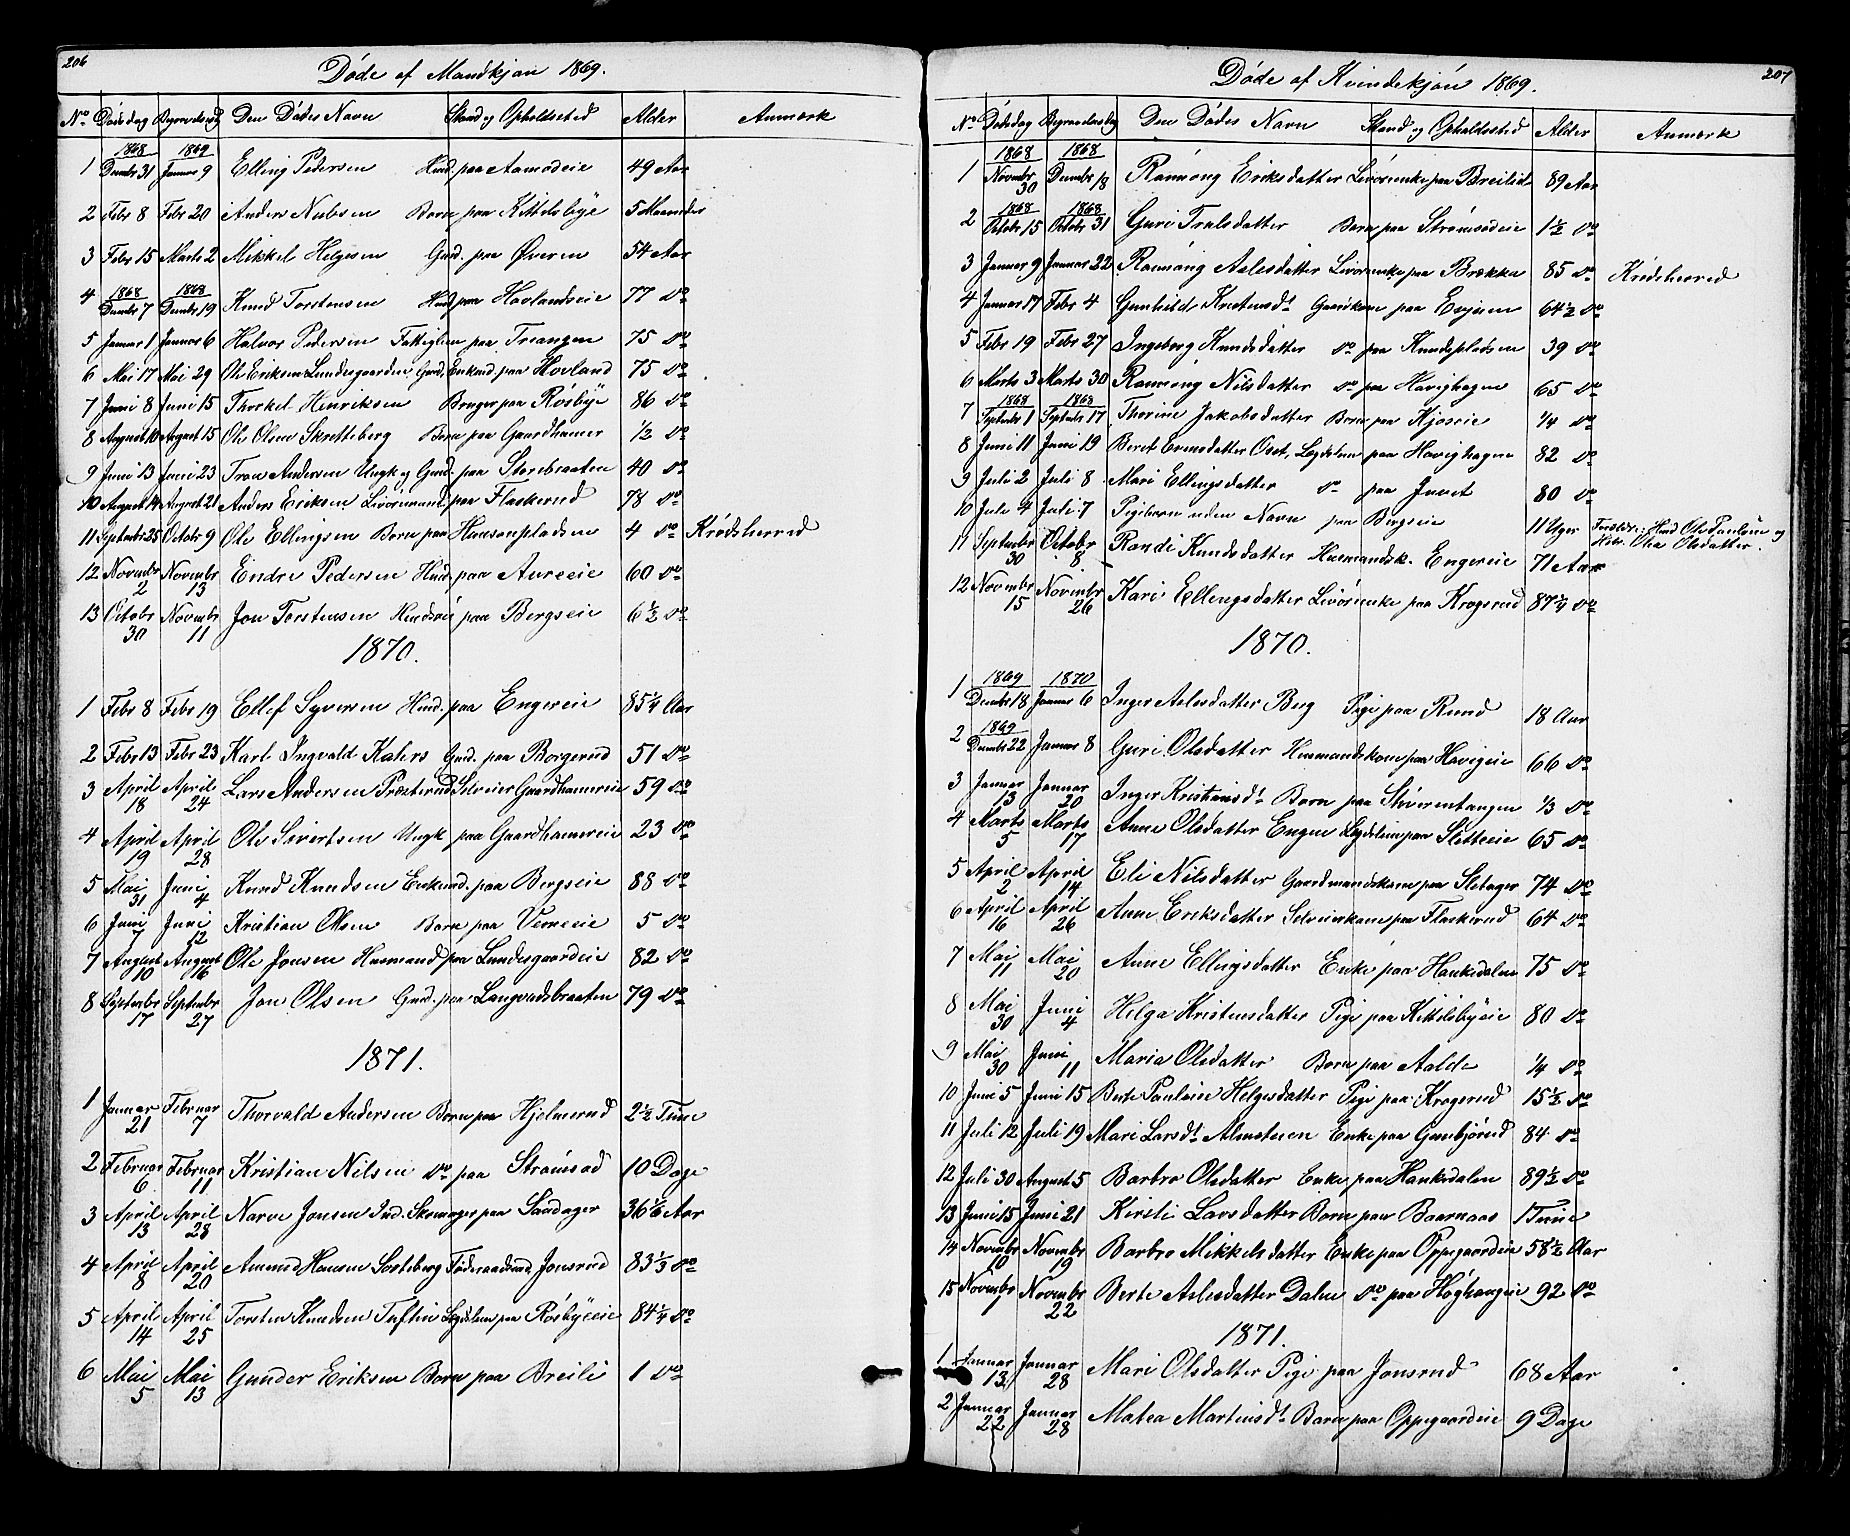 206
Døde af Mandkjøn 1869.
No Dødsdag Begravelsesdag Den Dødes Navn Stand og Opholdssted Alder Anmærk
1 1868 Decmbr 31 1869 Januar 9 Elling Pedersen Husmd. paa Aamodeie 49 Aar
2 Febr 8 Febr 20 Anders Nubsen Barn paa Kittelsbye 5 Maaneder
3 Febr 15 Marts 2 Mikkel Helgesen Gmd. paa Øveren 54 Aar
4 1868 Decmbr 7 1868 Decmbr 19 Knud Torstensen Husmd. paa Hovlandseie 77 Do
5 Januar 1 Januar 6 Halvor Pedersen Fattiglem paa Treangen 75 Do
6 Mai 17 Mai 29 Ole Eriksen Lundesgaarden Gmd. Enkmd. paa Hovland 75 Do
7 Juni 8 Juni 15 Thorkel Henriksen Bruger paa Rósbye 86 Do
8 August 10 August 15 Ole Olsen Skretteberg Barn paa Gaardhamer 1/2 Do
9 Juni 13 Juni 23 Tron Andersen Ungk og Gmd. paa Storebraaten 40 Do
10 August 14 August 21 Anders Eriksen Livóremand paa Flaskerud 78 Do
11 Septembr 25 Octobr 9 Ole Ellingsen Barn paa Hansenpladsen 4 Do Krødsherred
12 Novmbr 2 Novmbr 13 Endre Pedersen Husmd. paa Aureeie 60 Do
13 Octobr 30 Novmbr 11 Jon Torstensen paa Bergseie 6 1/2 Do
1870.
1 Febr 8 Febr 19 Ellef Syversen Husmd. paa Engereie 85 1/4 Aar
2 Febr 13 Febr 23 Karl Ingvald Kalers Gmd. paa Borgerud 51 Do
3 April 18 April 24 Lars Andersen Præsterud Selveier Gaardhamereie 59 Do
4 April 19 April 28 Ole Sivertsen Ungk paa Gaardhamereie 23 Do
5 Mai 31 Juni 4 Knud Knudsen Enkemd. paa Bergseie 88 Do
6 Juni 7 Juni 12 Kristian Olsen Barn paa Verneeie 5 Do
7 August 10 August 16 Ole Jonsen Husmand paa Lundesgaardeie 82 Do
8 Septembr 17 Septembr 27 Jon Olsen Gmd. paa Langvadsbraaten 79 Do
1871.
1 Januar 21 Februar 7 Thorvald Andersen Barn paa Hjelmerud 2 1/2 Time
2 Februar 6 Februar 11 Kristian Nilsen Do paa Strømsod 10 Dage
3 April 13 April 28 Narve Jonsen Ind. Skomager paa Sandager 36 1/6 Aar
4 April 8 April 20 Amund Hansen Sorteberg Føderaadsmd. Jonsrud 83 1/3 Do
5 April 14 April 25 Torsten Knudsen Tuftin Lægdslem paa Rósbyeeie 84 1/4 Do
6 Mai 5 Mai 13 Gunder Eriksen Barn paa Breili 1 Do
207
Døde af Kvindekjøn 1869.
No Dødsdag Begravelsesdag Den Dødes Navn Stand og Opholdssted Alder Anmærk
1 1868 Novmbr 30 1868 Decmbr 18 Rannóng Eriksdatter Livórenke paa Breilid 89 Aar
2 1868 Octobr 15 1868 Octobr 31 Guri Trulsdatter Barn paa Strømsodeie 1 1/2 Do
3 Januar 9 Januar 22 Rannóng Aslesdatter Livórenke paa Brækka 85 Do Krødsherred
4 Januar 17 Febr 4 Gunhild Kristensdt Gaardkone paa Enjum 64 1/2 Do
5 Febr 19 Febr 27 Ingeborg Knudsdatter Do paa Knudspladsen 39 Do
6 Marts 3 Marts 30 Rannong Nilsdatter Do paa Havighagen 65 Do
7 1868 Septmbr 1 1868 Septmbr 17 Thorine Jakobsdatter Barn paa Kjoseie 1/4 Do
8 Juni 11 Juni 19 Beret Evensdatter Lægdslem paa Havighagen 82 Do
9 Juli 2 Juli 8 Mari Ellingsdatter Do paa Juvet 80 Do
10 Juli 4 Juli 7 Pigebarn uden Navn paa Bergseie 11 Uger Forældre: Husmd Ole Paulsen og Hstr. Olea Olsdatter.
11 Septembr 30 Octobr 8 Randi Knudsdatter Husmandsk. Engereie 71 Aar
12 Novmbr 15 Novmbr 26 Kari Ellingsdatter Livórenke paa Krogsrud 87 1/4 Do
1870.
1 1869 Decmbr 18 1870 Januar 6 Inger Aslesdatter Berg Pige paa Ruud 18 Aar
2 1869 Decmbr 22 Januar 8 Guri Olsdatter Husmandskone paa Havigeie 66 Do
3 Januar 13 Januar 20 Inger Kristiansdt Barn paa Skiverntangen 1/3 Do
4 Marts 5 Marts 17 Anne Olsdatter Engen Lægdslem paa Sletteeie 65 Do
5 April 2 April 14 Eli Nilsdatter Gaardmandskone paa Sletager 74 Do
6 April 16 April 26 Anne Eriksdatter Selveierkone paa Flaskerud 64 Do
7 Mai 11 Mai 20 Anne Ellingsdatter Enke paa Hankedalen 75 Do
8 Mai 30 Juni 4 Helga Kristensdatter Pige paa Kittelsbyeie 80 Do
9 Mai 30 Juni 11 Maria Olsdatter Barn paa Aalde 1/4 Do
10 Juni 5 Juni 15 Berte Pauline Helgesdatter Pige paa Krogerud 15 1/2 Do
11 Juli 12 Juli 19 Mari Larsdt Almsteen Enke paa Gunbjørud 84 Do
12 Juli 30 August 5 Barbro Olsdatter Enke paa Hankedalen 89 1/2 Do
13 Juni 15 Juni 21 Kirsti Larsdatter Barn paa Baarnaas 1 Time
14 Novmbr 10 Novmbr 19 Barbro Mikkelsdatter Enke paa Oppegaardeie 58 1/2 Aar
15 Novmbr 7 Novmbr 22 Berte Aslesdatter Dalen Do paa Høghaugeie 92 Do
1871.
1 Januar 13 Januar 28 Mari Olsdatter Pige paa Jonsrud 68 Aar
2 Januar 22 Januar 28 Matea Martinsdt Barn paa Oppegaardeie 9 Dage